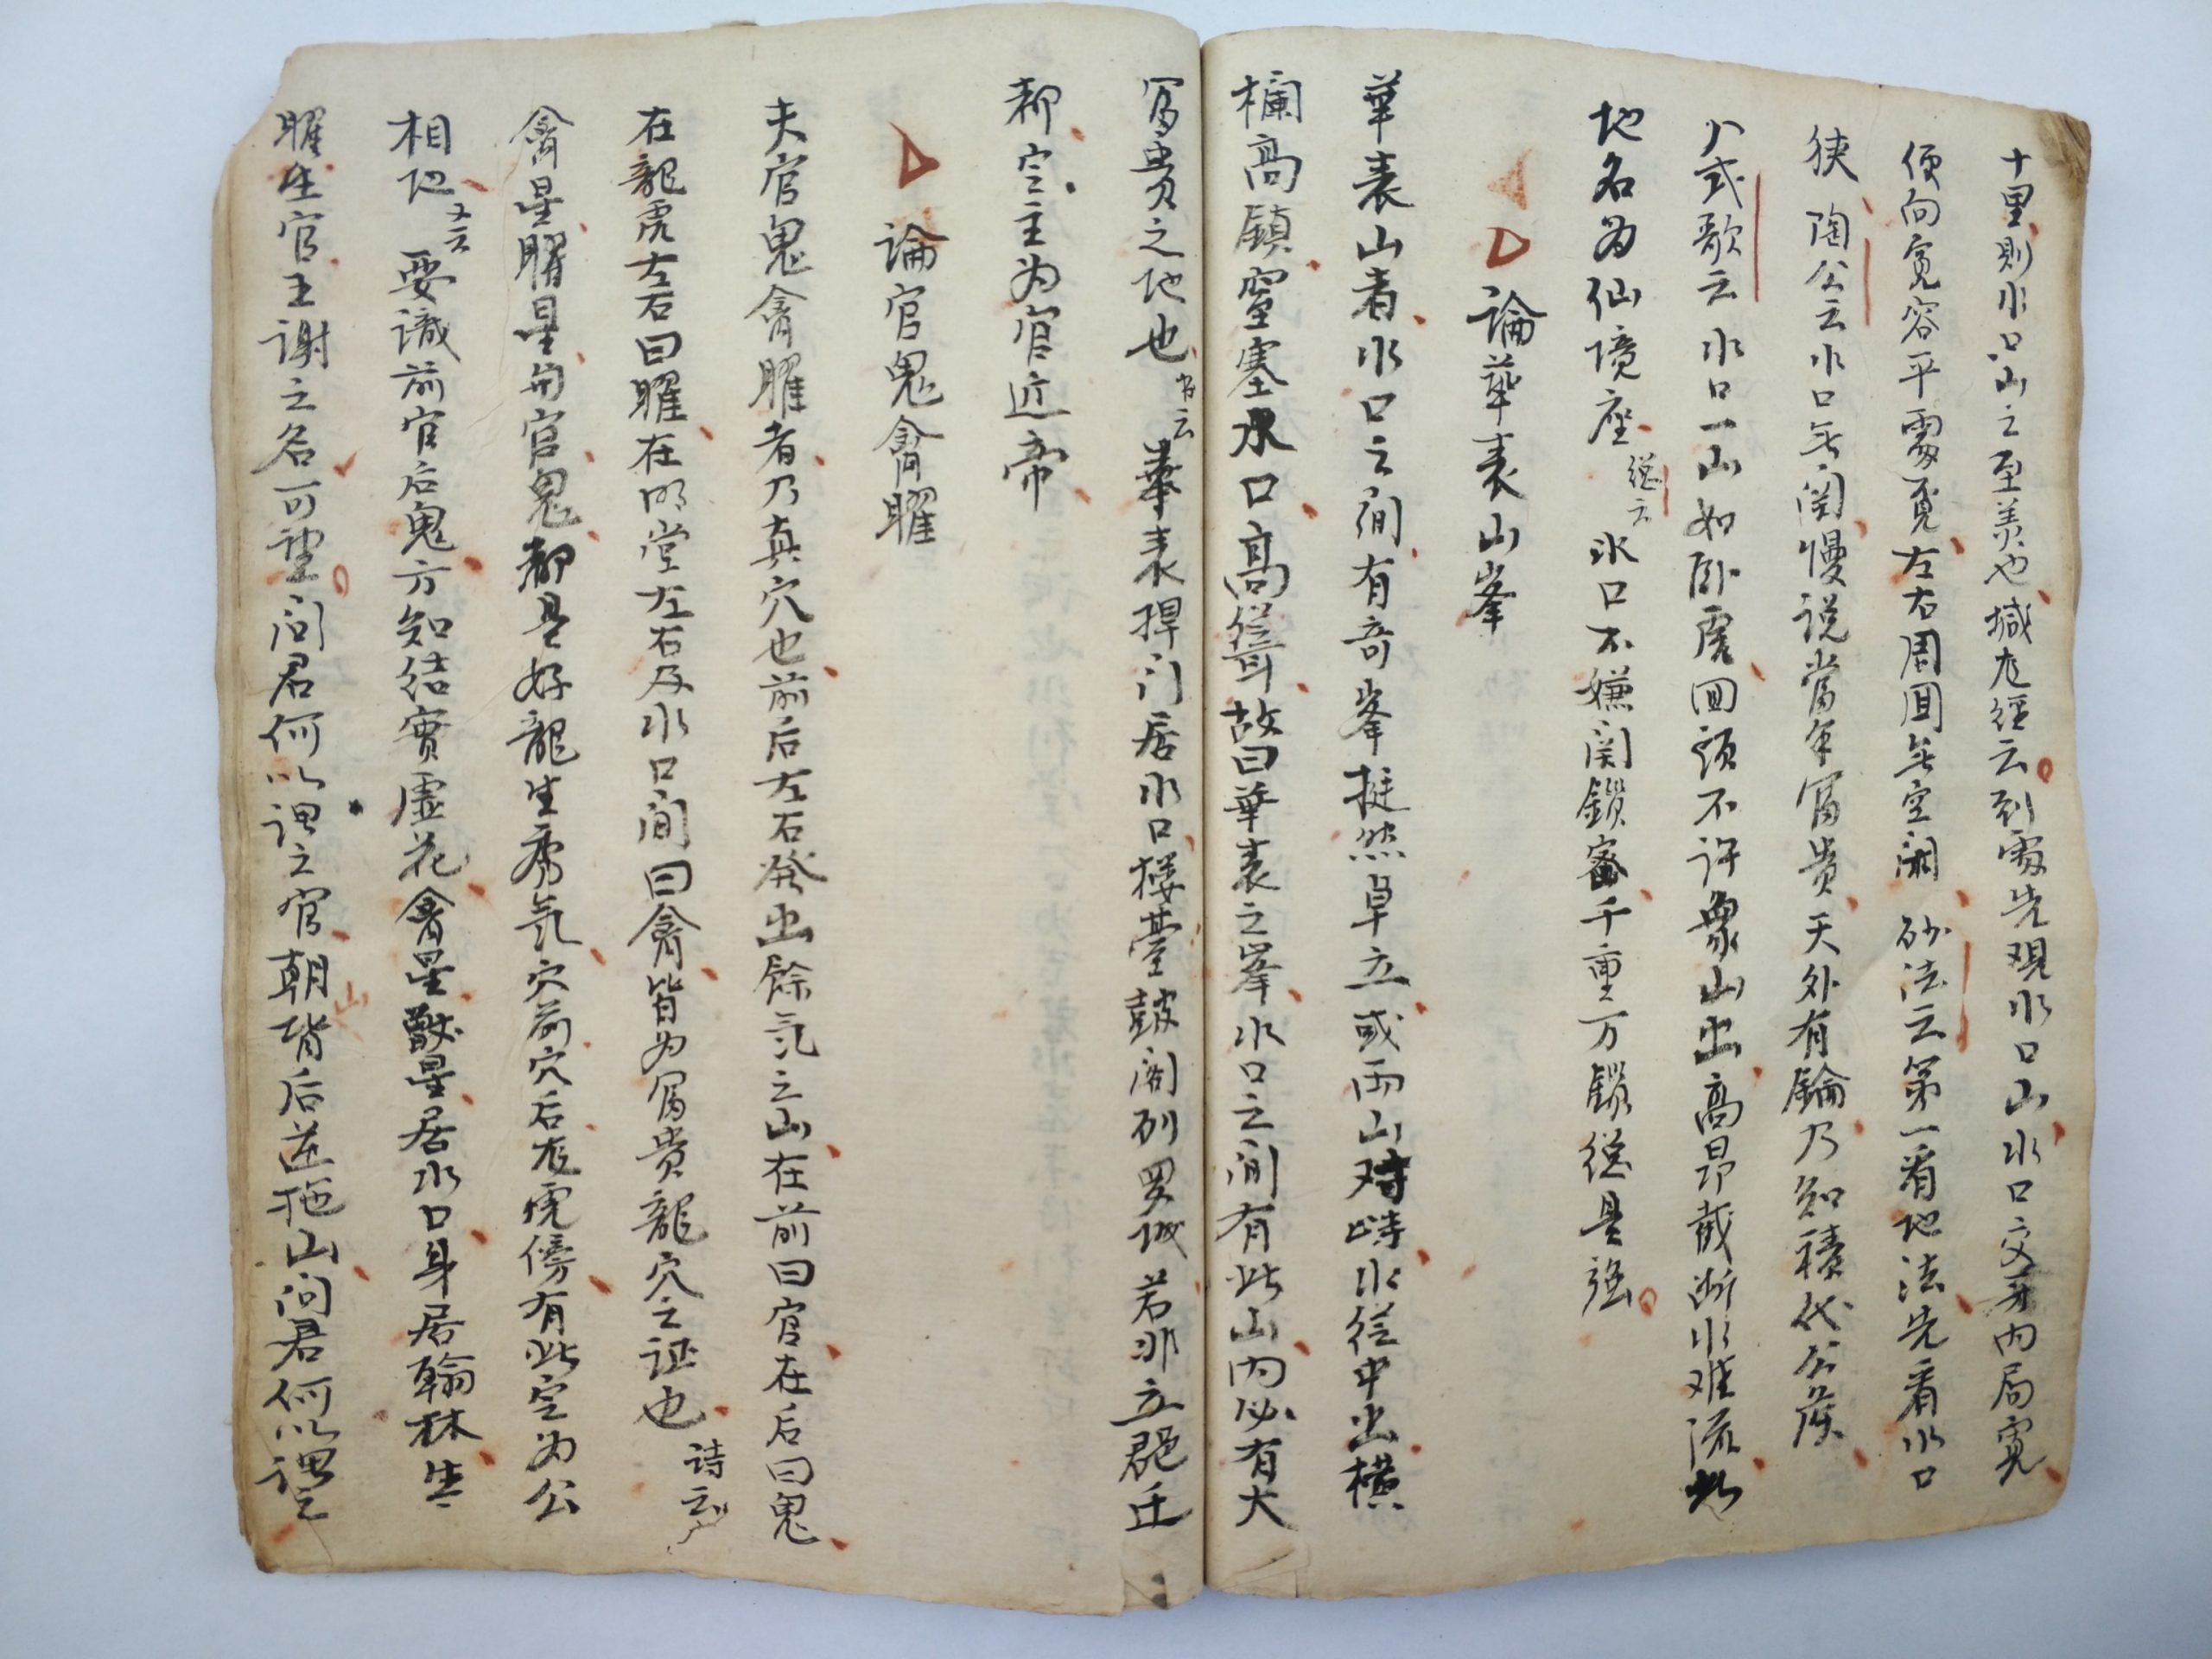 十里則水口山之至美也撼龙經云到處先观水口山水口交牙内局寬
便向寬容平處覓左右周囬無空闕砂法云第一看地法先看水口
狭陶公云水口無関慢说當年富贵天外有鑰乃知積代公侯
八式歌云水口一山如卧虎回頭不许眾山出高昂截断水难流此
地名为仙境座 経云 水口不嫌関鎖密千重万鎖総是强
論華表山峯
華表山者水口之间有奇峯挺然卓立或两山对峙水從中出横
欄高鎮窒塞水口高聳故曰華表之峯水口之间有此山内必有大
富貴之地也 云 華表捍门居水口楼臺鼓阁列罗城若非立郡迁
都定主为官近帝
論官鬼禽曜
夫官鬼禽曜者乃真穴也前后左右発出餘氣之山在前曰官在后曰鬼
在龍虎左右曰曜在明堂左右及水口间曰禽皆为富贵龍穴之证也 诗云
禽星曜星與官鬼都是好龍生秀氣穴前穴后龙虎傍有此定为公
相地 又云 要識前官后鬼方知结實虚花禽星獸星居水口身居翰林生
曜生官王謝之名可望问君何以谓之官朝背后逆拖山问君何以谓之